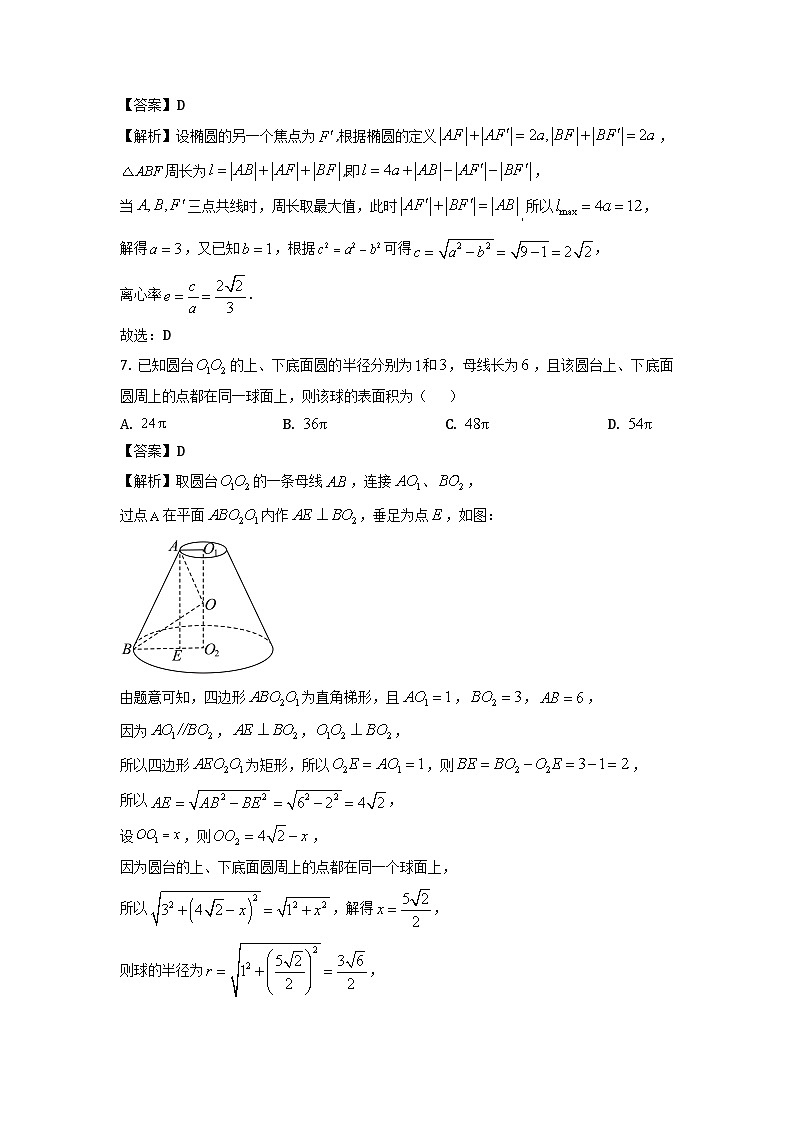 【答案】D
【解析】设椭圆的另一个焦点为 F′,根据椭圆的定义|AF|+|AF′|=2a,|BF|+|BF′|=2a，
△ABF周长为l=|AB|+|AF|+|BF|,即l=4a+|AB|−|AF′|−|BF′|，
当 A,B,F′三点共线时，周长取最大值，此时|AF′|+|BF′|=|AB|,所以l_max=4a=12，
解得a=3，又已知b=1，根据c²=a²−b²可得c=√(a²−b²)=√(9−1)=2√2，
离心率e=c/a=2√2/3.
故选：D
7. 已知圆台O₁O₂的上、下底面圆的半径分别为1和3，母线长为6，且该圆台上、下底面
圆周上的点都在同一球面上，则该球的表面积为（　　）
A. 24π B. 36π C. 48π D. 54π
【答案】D
【解析】取圆台O₁O₂的一条母线AB，连接AO₁、BO₂，
过点A在平面ABO₂O₁内作AE⊥BO₂，垂足为点E，如图：
A O₁
O
B E O₂
由题意可知，四边形ABO₂O₁为直角梯形，且AO₁=1，BO₂=3，AB=6，
因为AO₁//BO₂，AE⊥BO₂，O₁O₂⊥BO₂，
所以四边形AEO₂O₁为矩形，所以O₂E=AO₁=1，则BE=BO₂−O₂E=3−1=2，
所以AE=√(AB²−BE²)=√(6²−2²)=4√2，
设OO₁=x，则OO₂=4√2−x，
因为圆台的上、下底面圆周上的点都在同一个球面上，
所以√(3²+(4√2−x)²)=√(1²+x²)，解得x=5√2/2，
则球的半径为r=√(1²+(5√2/2)²)=3√6/2，